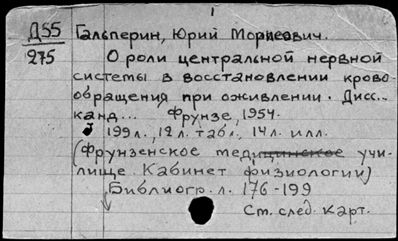 1
Д55 Гальперин, Юрий Моркеович.
275 О роли центральной нервной
системы в восстановлении крово-
обращения при оживлении. Дисс...
канд... Фрунзе, 1954.
199 л., 12 л. табл., 14 л. илл.
(Фрунзенское медицинское учи-
лище. Кабинет физиологии)
Библиогр. л. 176-199
См. след. карт.